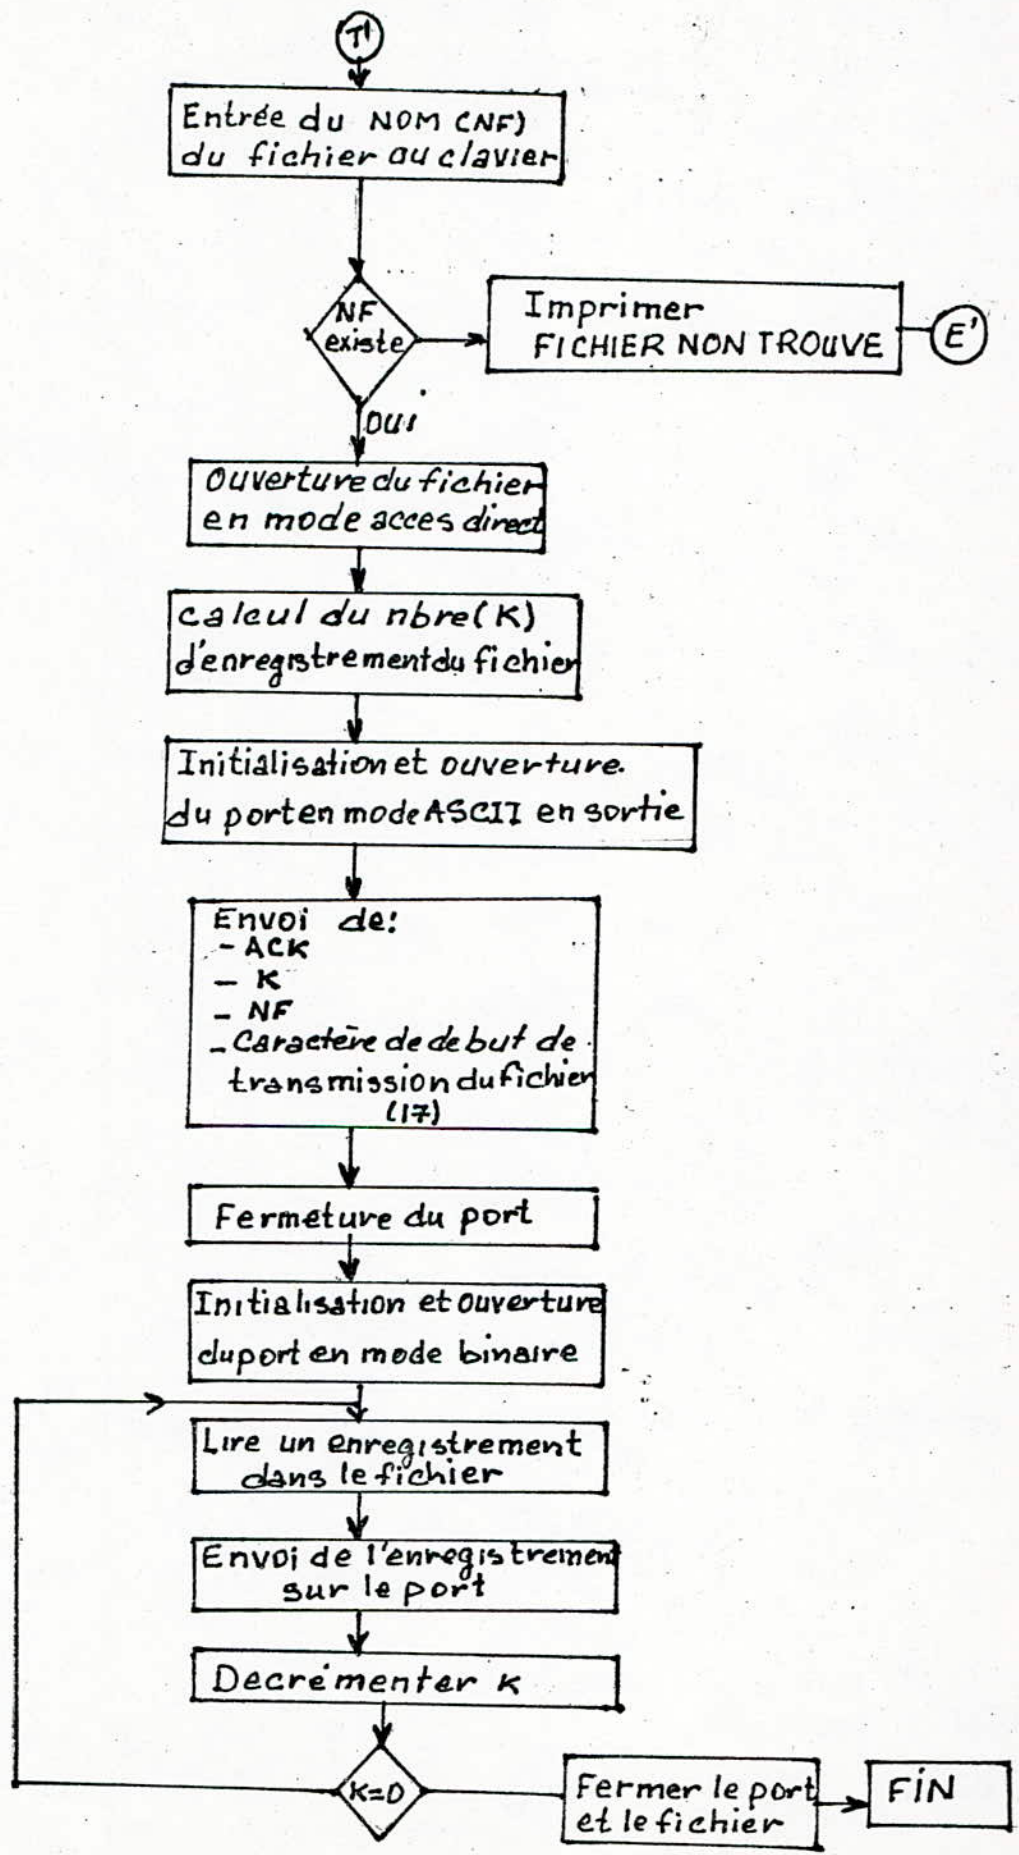 T'
Entrée du NOM (NF)
du fichier au clavier
NF
existe
Imprimer
FICHIER NON TROUVE
E'
OUI
Ouverture du fichier
en mode acces direct
Calcul du nbre (K)
d'enregistrement du fichier
Initialisation et ouverture
du port en mode ASCII en sortie
Envoi de:
- ACK
- K
- NF
- Caractère de debut de
transmission du fichier
(17)
Fermeture du port
Initialisation et ouverture
du port en mode binaire
Lire un enregistrement
dans le fichier
Envoi de l'enregistrement
sur le port
Decrémenter K
K=0
Fermer le port
et le fichier
FIN